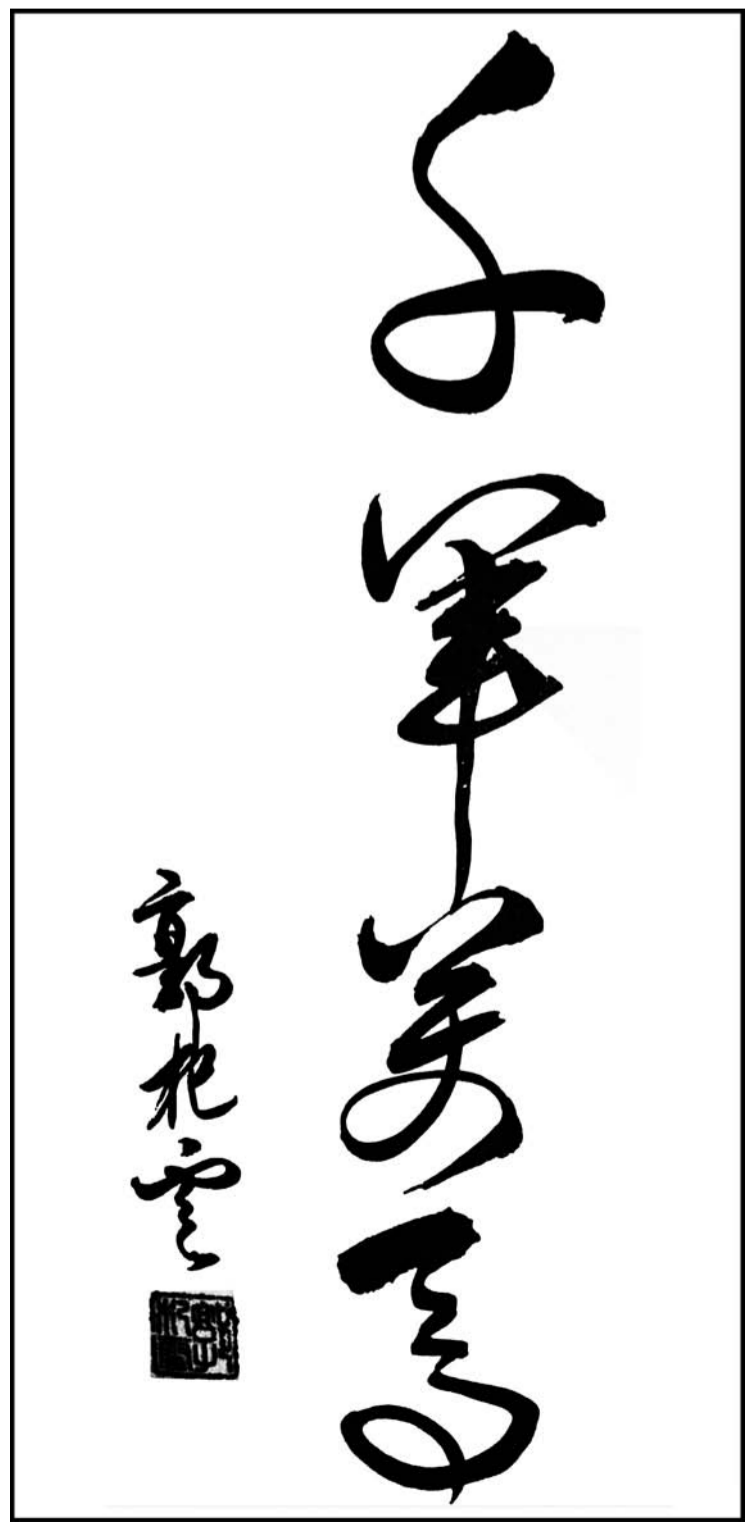 千軍萬馬
郭雲